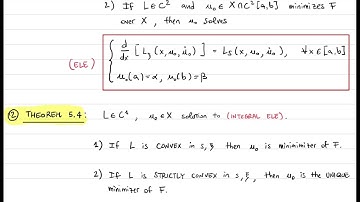 2) If L∈C² and u₀ ∈ X∩C²[a,b] minimizes F
over X, then u₀ solves
(ELE) { d/dx [ L_ξ(x, u₀, u̇₀) ] = L_s(x, u₀, u̇₀), ∀x∈[a,b]
u₀(a)=α, u₀(b)=β
② THEOREM 5.4: L∈C¹, u₀∈X solution to (INTEGRAL ELE).
1) If L is CONVEX in s,ξ then u₀ is minimizer of F.
2) If L is STRICTLY CONVEX in s,ξ, then u₀ is the UNIQUE
minimizer of F.